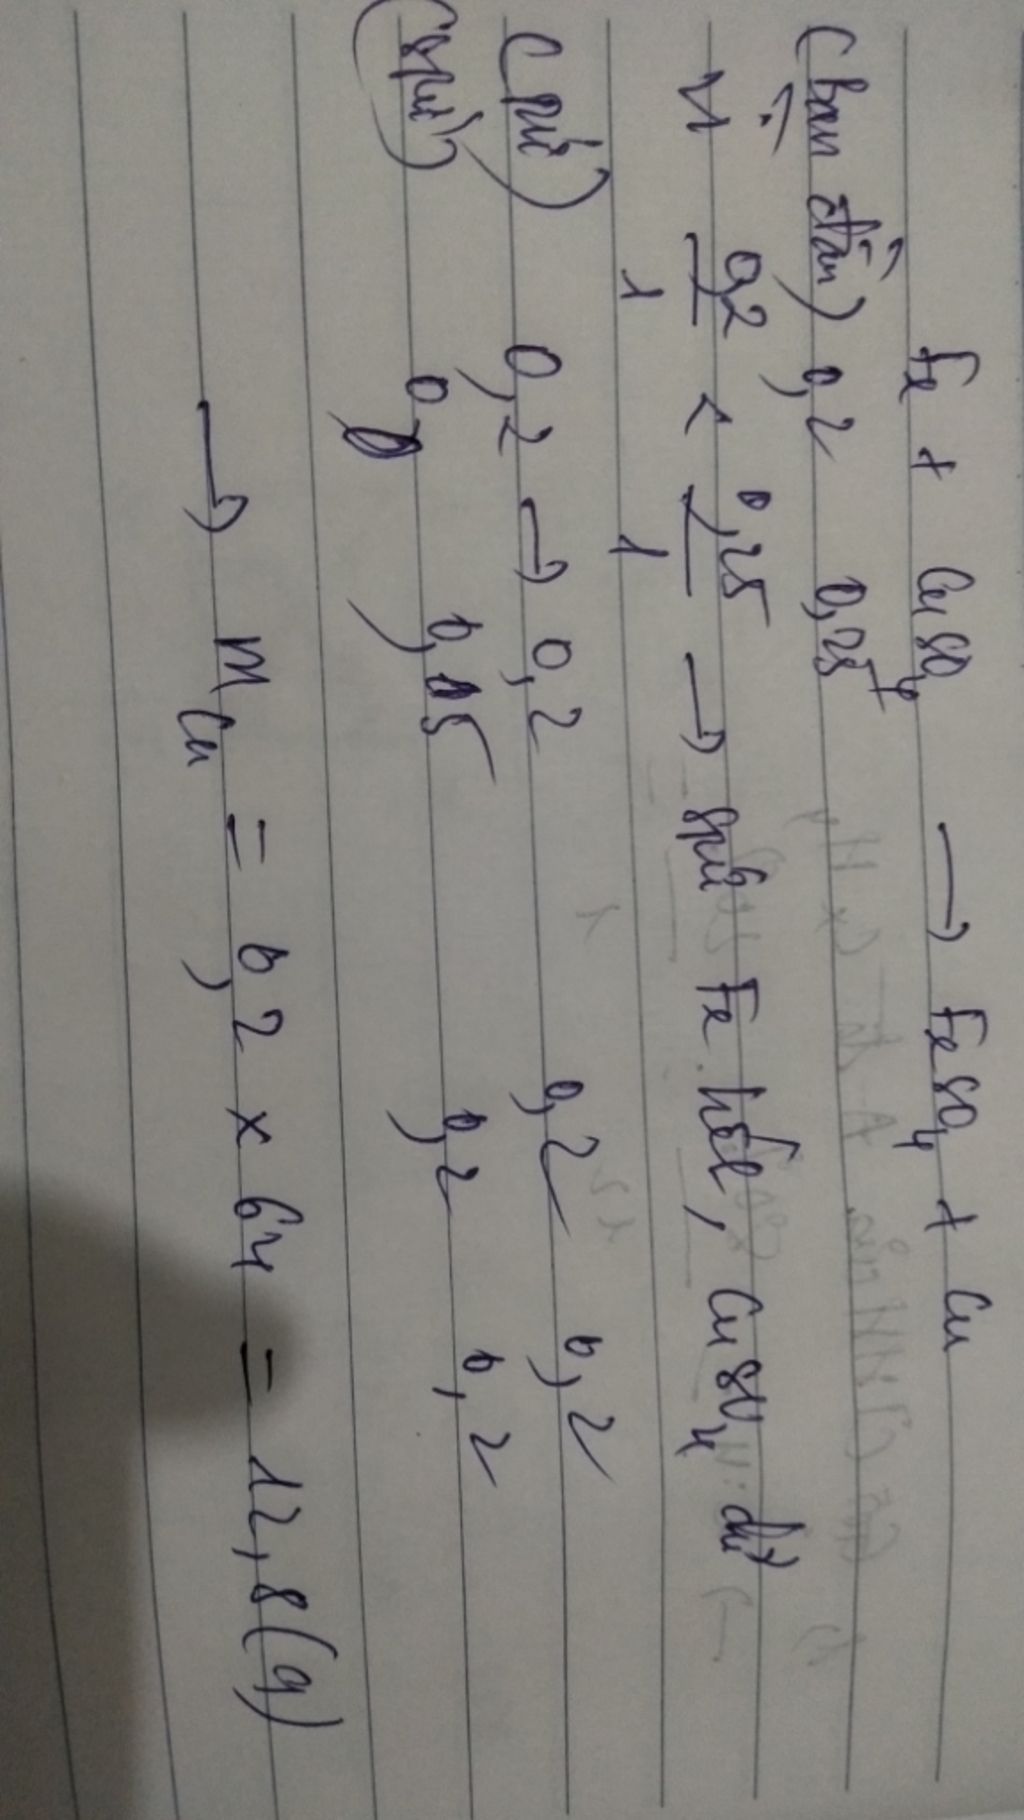 Fe + CuSO4 → FeSO4 + Cu
(ban đầu) 0,2 0,25
Vì 0,2/1 < 0,25/1 → spứ Fe hết, CuSO4 dư
(pứ) 0,2 → 0,2 0,2 0,2
(spứ) 0 0,05 0,2 0,2
→ mCu = 0,2 x 64 = 12,8(g)